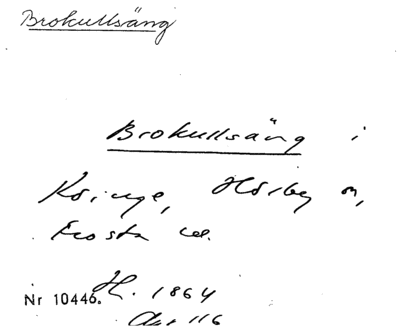 Brokullsäng
Brokullsäng i
Köinge, Hörby sn,
Frosta hd.
Nr 10446. H. 1864
Akt 116